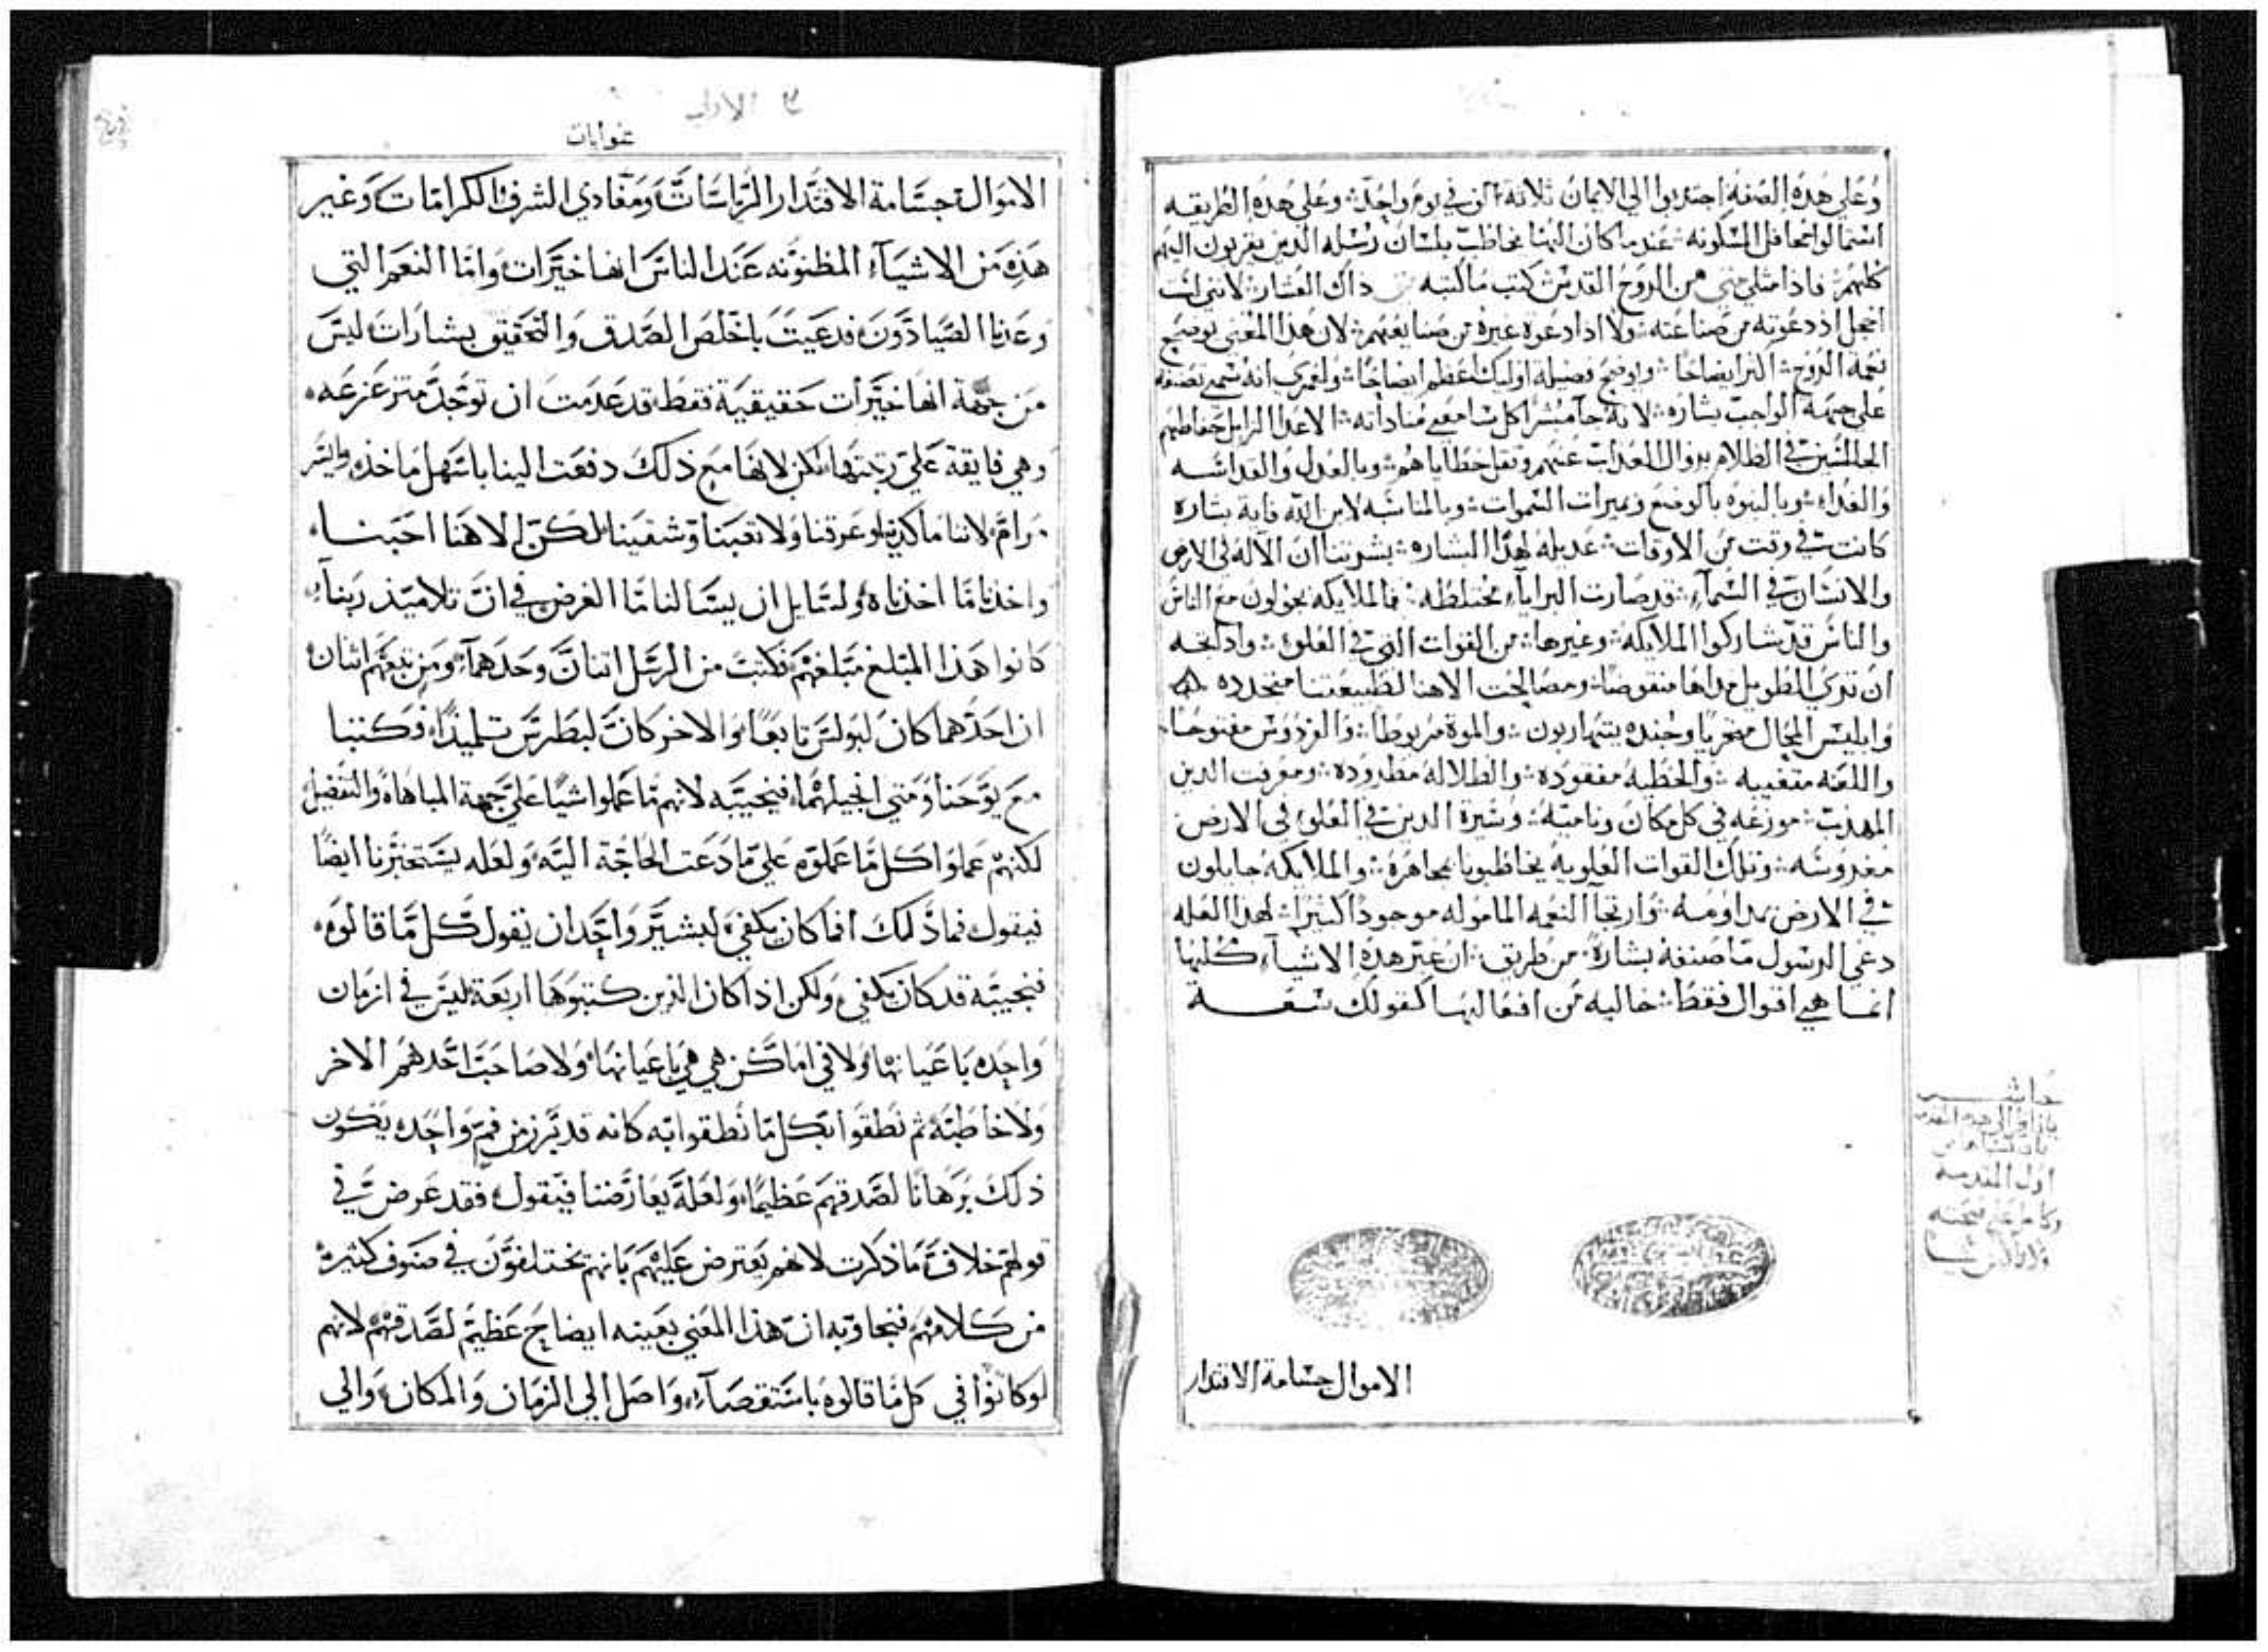 وعلى هذه الصفة اجتذبوا الى الايمان ثلاثة الف في يوم واحد وعلى هذه الطريقه
استمالوا محافل المسكونه عندما كان الهنا يخاطب بلسان رسله الذين يقربون اليهم
كلهم فاذا متلي من الروح القدس كتب ما كتبه ذاك العشار لانني لست
اخجل اذ دعوته من صناعته ولا اذا دعوة غيره من صنايعهم لان هذا المعنى يوضح
نعمة الروح اكثر ايضاحا ويوضح فضيلة اوليك اعظم ايضاحا ولعمري انه سمى تصنيفه
على جهة الواجب بشاره لانه جا مبشرا كل سامعي مناداته الاعدا
الجالسين في الظلام بزوال العذاب عنهم ونقل خطاياهم وبالعدل والقداسه
والفداء وبالبنوه بالوضع وميرات السموات وبالمناسبه لابن الله فاية بشاره
كانت في وقت من الاوقات عديله لهذا البشاره بشرتنا ان الاله في الارض
والانسان في السماء قد صارت البرايا مختلطه فالملايكه يجولون مع الناس
والناس قد شاركوا الملايكه وغيرها من القوات التي في العلو واد لمحه
ان ترى الطويل مداها منقوضا ومصالحت الاهنا لطبيعتنا متجدده
وابليس المحال مخزيا وجنده يتهاربون والموة مربوطا والفردوس مفتوحا
واللعنه متغيبه والخطيه مفقوده والطلاله مطروده ومعرفت الدين
المهذب موزعه في كل مكان وناميه وسيرة الذين في العلو في الارض
مغروسه وتلك القوات العلويه يخاطبونا مجاهرة والملايكه جايلون
في الارض بمداومه وارتجا النعمه الماموله موجودا كثيرا لهذا العله
دعي الرسول ما صنفه بشارة من طريق ان غير هذه الاشياء كلها
انما هي اقوال فقط خاليه من افعالها كقولك سعة
الاموال جسامة الاقتدار
حاشيه
اول المقدسه
عنوايات
الاموال جسامة الاقتدار الرياسات ومفادي الشرف الكرامات وغير
هذه من الاشياء المظنونه عند الناس انها خيرات واما النعم التي
وعدنا الصيادون فدعيت باخلص الصدق والتحقيق بشارات ليس
من جهة انها خيرات حقيقية فقط قد عدمت ان توجد متزعزعه
وهي فايقة على رتبتها لكن لانها مع ذلك دفعت الينا باسهل ماخذ وايسر
مرام لاننا ما كدينا وعرقنا ولا تعبنا وشقينا لكن الاهنا احبنا
واخذنا ما اخذناه ولسايل ان يسالنا ما الغرض في ان تلاميذ ربنا
كانوا هذا المبلغ مبلغهم فكتب من الرسل اتنان وحدهما ومن تبعهم اثنان
ان احدهما كان لبولس تابعا والاخر كان لبطرس تلميذا وكتبا
مع يوحنا ومتي انجيلهما فنجيبه لانهم ما عملوا شيا على جهة المباهاة والتفضيل
لكنهم عملوا كل ما عملوه على ما دعت الحاجة اليه ولعله يستخبرنا ايضا
فيقول فماذا لك افما كان يكفي لبشير واحد ان يقول كل ما قالوه
فنجيبه قد كان يكفي ولكن اذا كان الذين كتبوها اربعة ليس في ازمان
واحده باعيانها ولا في اماكن هي هي باعيانها ولا صاحب احدهم الاخر
ولا خاطبه ثم نطقوا بكل ما نطقوا به كانه قد برز من فم واحده يكون
ذلك برهانا لصدقهم عظيما ولعله يعارضنا فيقول فقد عرض في
قولهم خلاف ما ذكرت لانهم يعترض عليهم بانهم يختلفون في صنوف كثيره
من كلامهم فنجاوبه ان هذا المعني بعينه ايضاح عظيم لصدقهم لانهم
لو كانوا في كل ما قالوه باستقصاء واصل الي الزمان والمكان والي